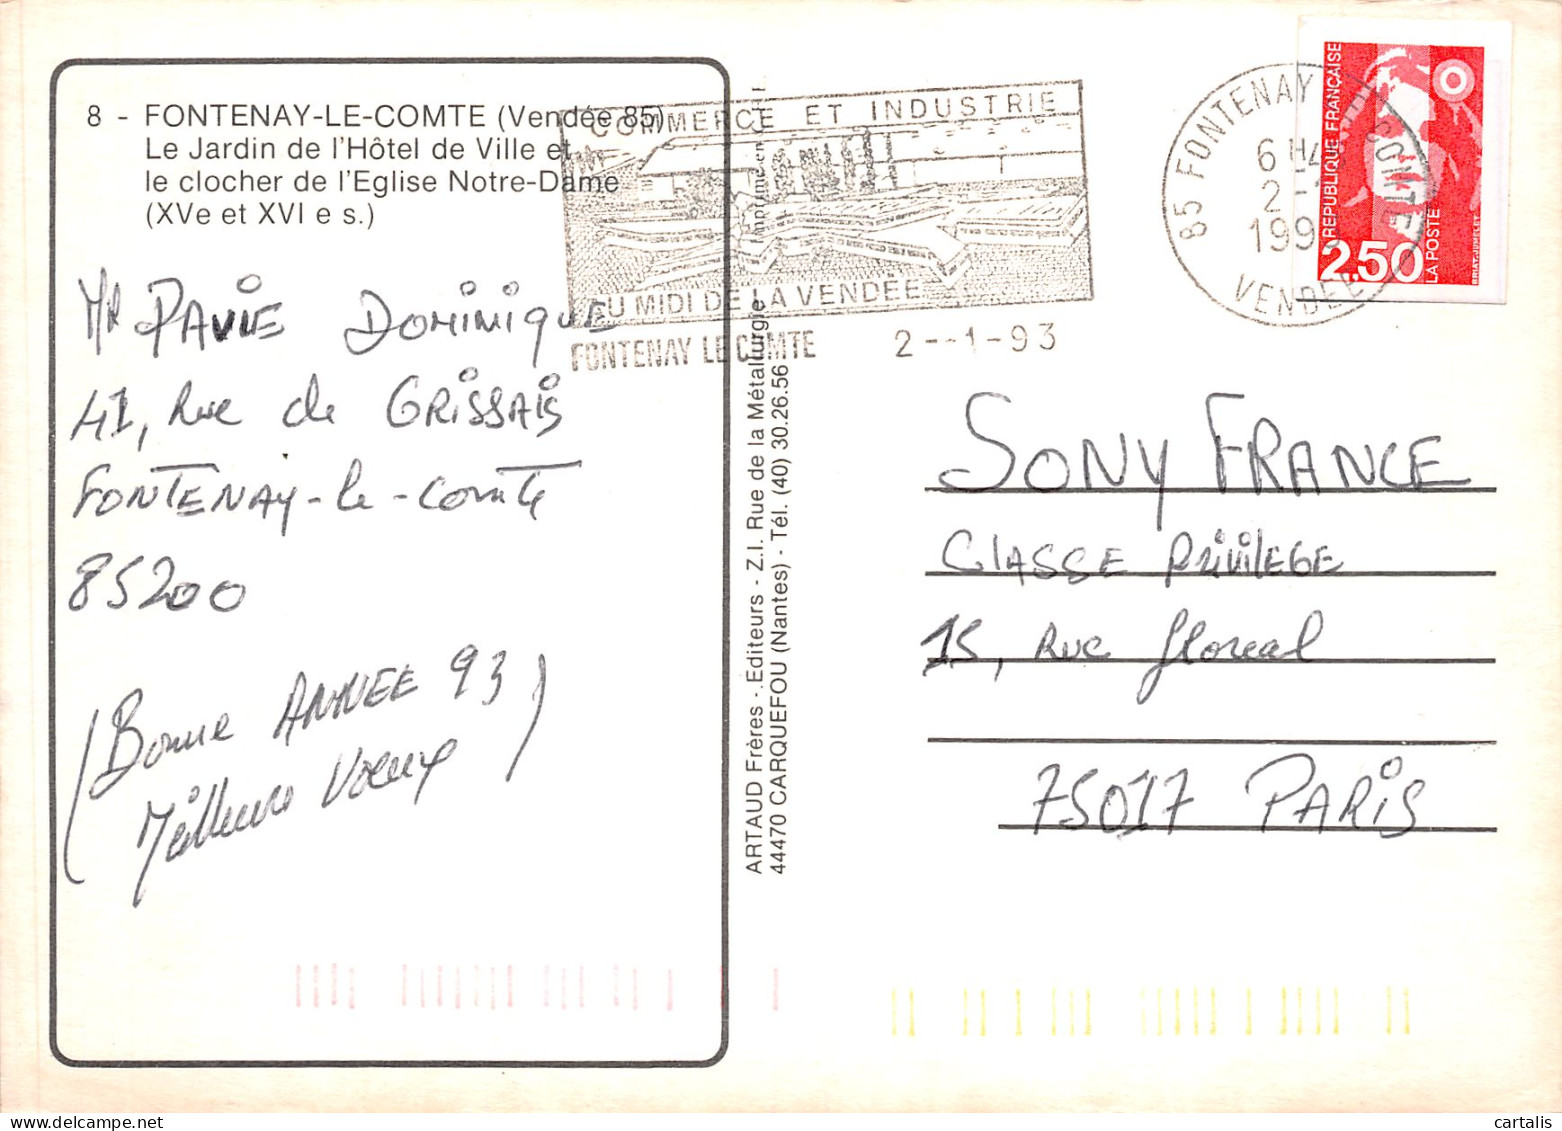 8 - FONTENAY-LE-COMTE (Vendée 85)
Le Jardin de l'Hôtel de Ville et
le clocher de l'Eglise Notre-Dame
(XVe et XVI e s.)
Mr PAVIE DOMINIQUE
41, Rue de GRISSAIS
FONTENAY-le-comte
85200
(Bonne ANNEE 93
Meilleurs Voeux)
COMMERCE ET INDUSTRIE
AU MIDI DE LA VENDÉE
FONTENAY LE COMTE 2--1-93
85 FONTENAY LE COMTE
6 H
2 -
199
VENDEE
REPUBLIQUE FRANÇAISE
2.50
LA POSTE
BRIAT-JUMELET
Imprimé en
ARTAUD Frères - Editeurs - Z.I. Rue de la Métallurgie
44470 CARQUEFOU (Nantes) - Tél. (40) 30.26.56
SONY FRANCE
CLASSE PRIVILEGE
15, Rue floreal
75017 PARIS
cartalis
delcampe.net